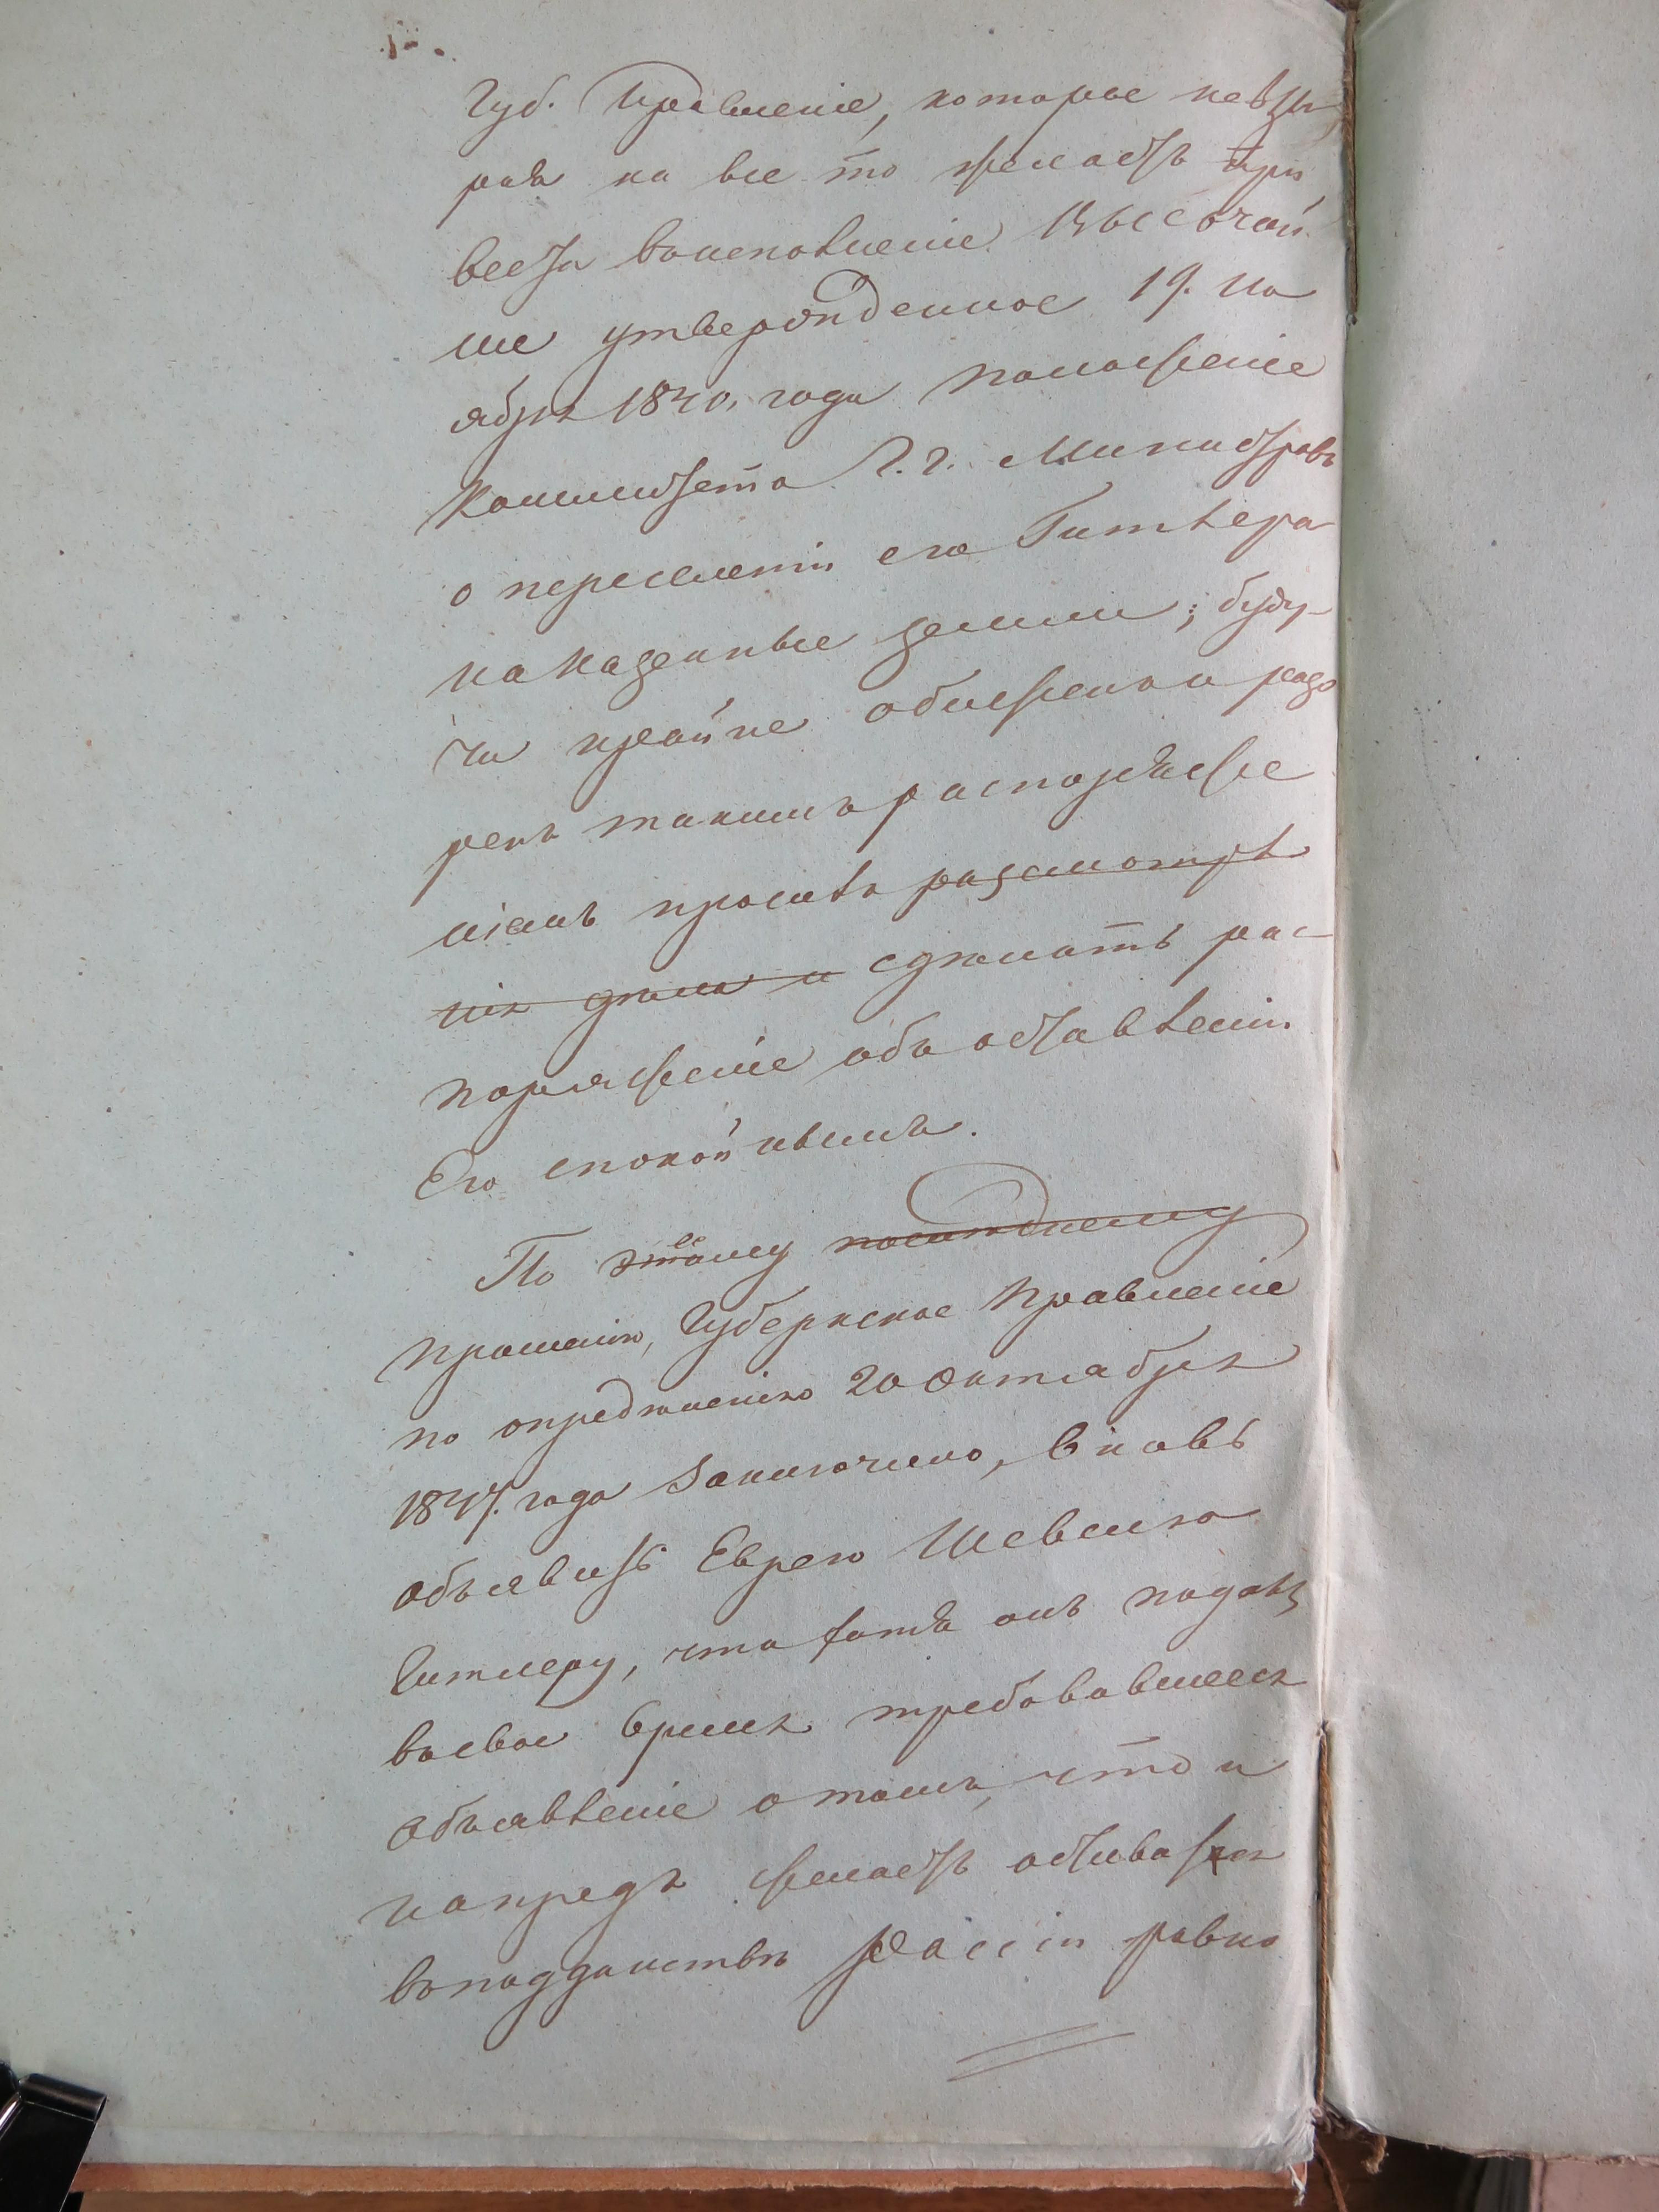 Губ. Правленіе, которое невзи-
рая на все то желаетъ при
вести воисполненіе Высочай-
ше утвержденное 19. Но
ября 1840, года положеніе
Комитета Г.г. Министровъ
о переселеніи его Гитлера
на казенные земли; буду-
чи крайне обиженъ и разо
ренъ такимъ распоряже
ніемъ просилъ разсмотрѣ
нія дѣла и сдѣлать рас-
поряженіе объ оставленіи
Его спокойнымъ.
По этому сему последнему
прошенію, Губернское Правленіе
по опредѣленію 20 Октября
1847. года Заключило, вновь
объявить Еврею Шевелю
Гитлеру, что хотя онъ подавъ
восвое время требовавшееся
объявленіе о томъ, что и
напредъ желаетъ оставаться
вподданствѣ Россіи равно